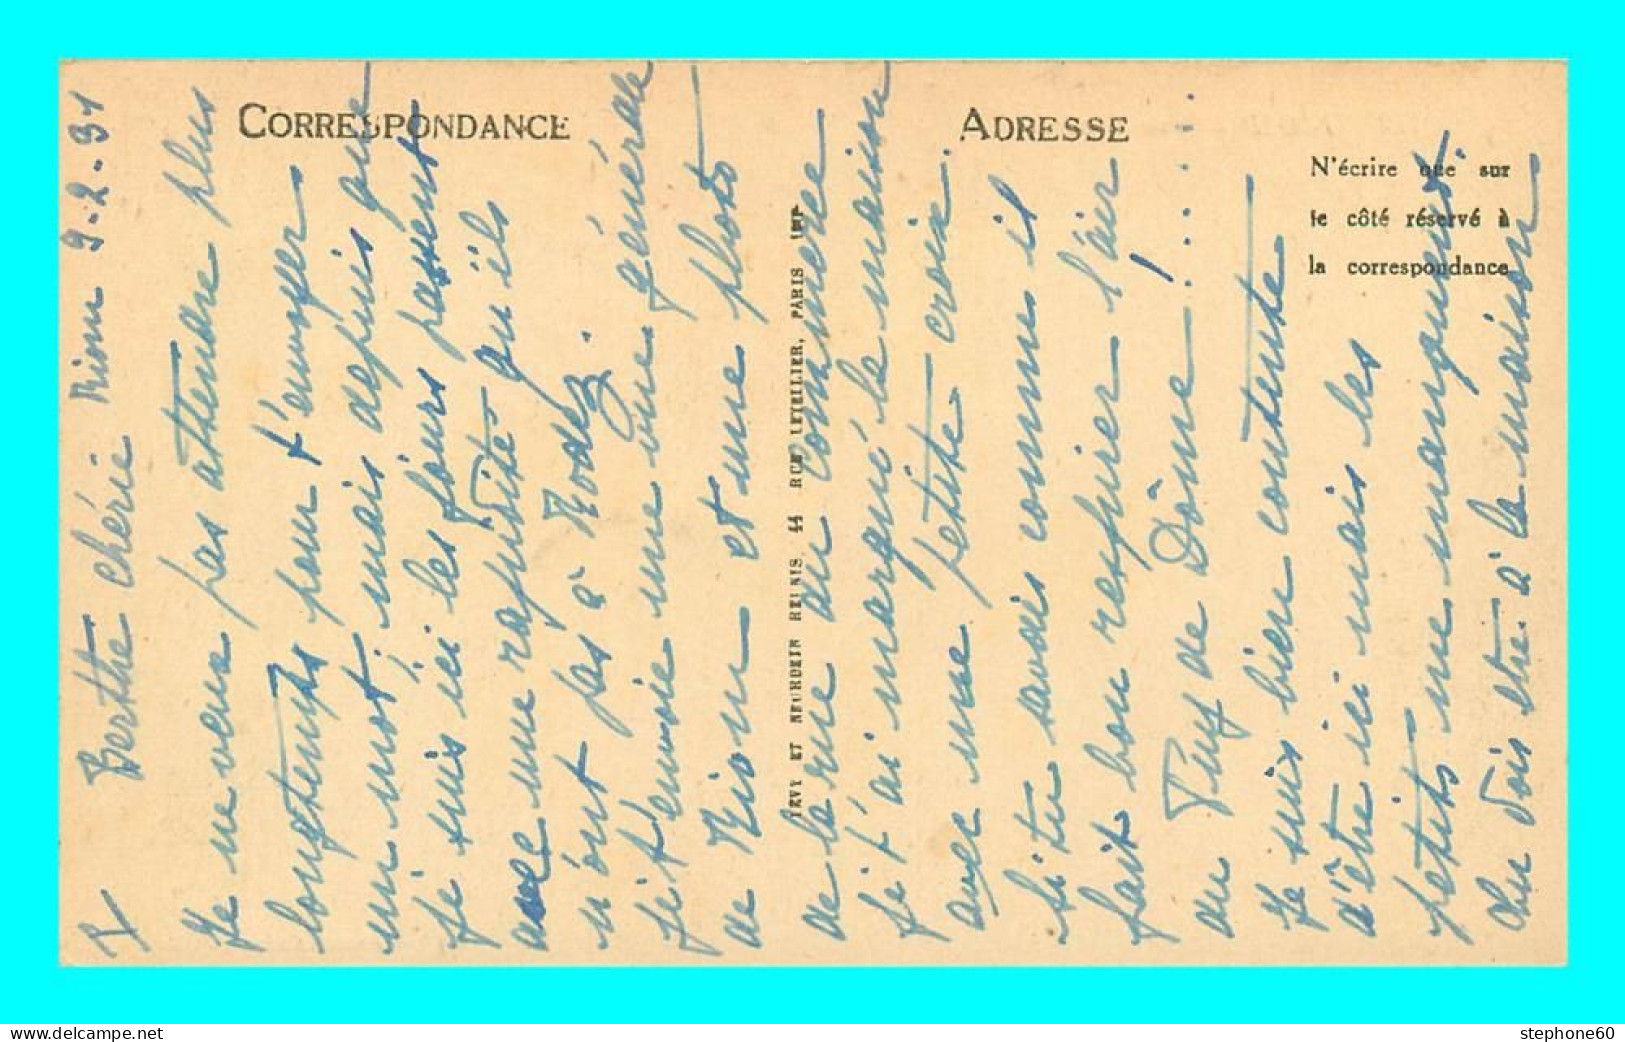 CORRESPONDANCE
ADRESSE
N'écrire que sur
le côté réservé à
la correspondance
LEVY ET NEURDEIN REUNIS, 44 RUE LETELLIER, PARIS IMP
Riom 9-2-31
Berthe Chérie
Je ne veux pas attendre plus
longtemps pour t'envoyer
un mot. mais depuis que
je suis ici les jours passent
avec une rapidité qu'ils
n'ont pas à Rodez.
je t'envoie une vue générale
de Riom et une photo
de la rue du commerce
je t'ai marqué la maison
avec une petite croix.
si tu savais comme il
fait bon respirer l'air
du Puy de Dôme!....
Je suis bien contente
d'être ici mais les
petits me manquent.
Chu dois être à la maison
stephone60
delcampe.net